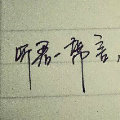 听君一席言，